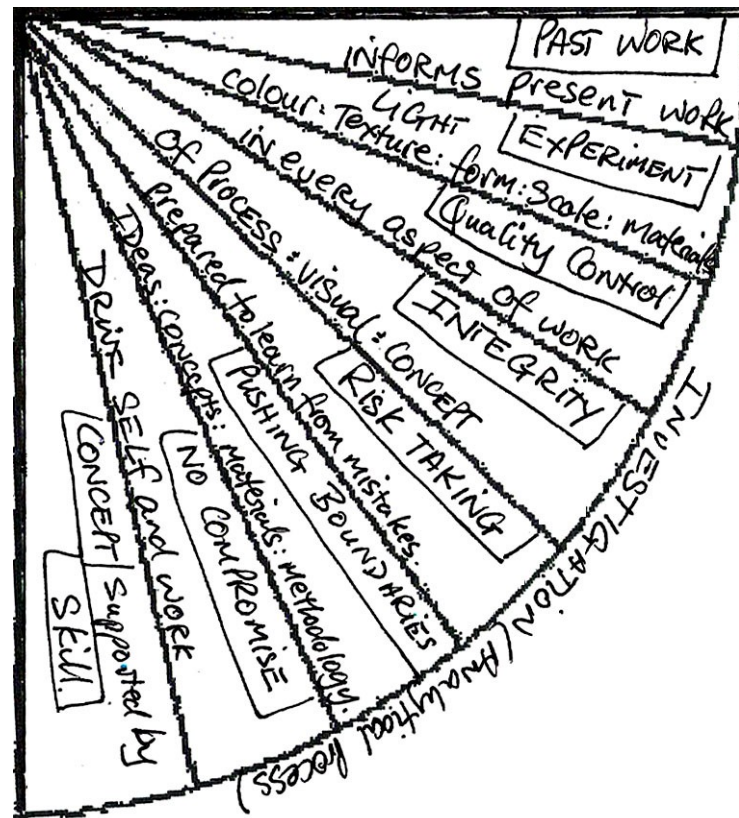 PAST WORK
INFORMS present WORK
EXPERIMENT
LIGHT
colour: Texture: form: Scale: Materials
Quality Control
in every aspect of work
INTEGRITY
of Process: visual: CONCEPT
RISK TAKING
prepared to learn from mistakes.
PUSHING BOUNDARIES
Ideas: concepts: Materials: Methodology.
NO COMPROMISE
DRIVE SELF and WORK
CONCEPT Supported by
Skill.
INVESTIGATION (Analytical Process)